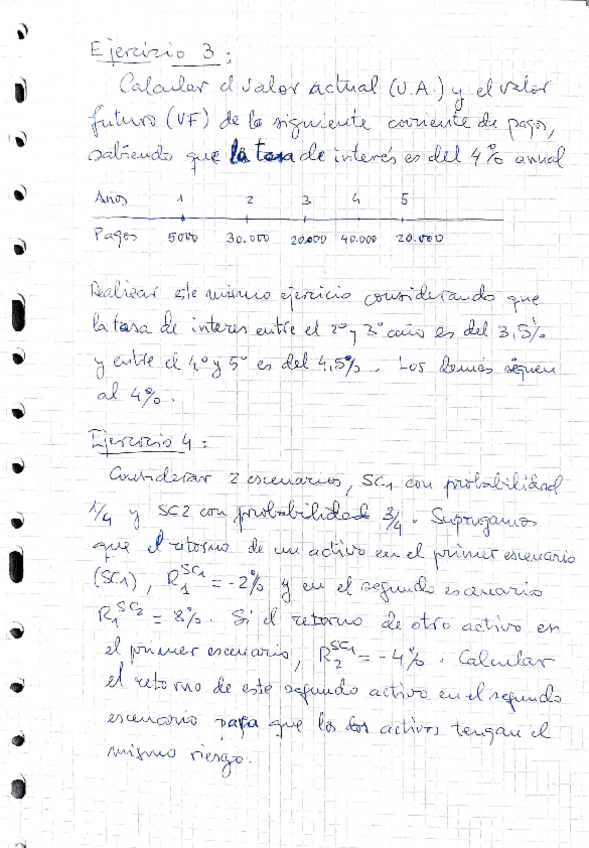 Ejercicio 3:
Calcular el valor actual (V.A.) y el valor
futuro (VF) de la siguiente corriente de pagos,
sabiendo que la tasa de interés es del 4% anual
Años 1 2 3 4 5
Pagos 5000 30.000 20.000 40.000 20.000
Realizar este mismo ejercicio considerando que
la tasa de interes entre el 2º y 3º año es del 3,5%
y entre el 4º y 5º es del 4,5%. Los demás siguen
al 4%.
Ejercicio 4:
Considerar 2 escenarios, SC1 con probabilidad
1/4 y SC2 con probabilidad 3/4. Supongamos
que el retorno de un activo en el primer escenario
(SC1), R₁^SC1 = -2% y en el segundo escenario
R₁^SC2 = 8%. Si el retorno de otro activo en
el primer escenario, R₂^SC1 = -4%. Calcular
el retorno de este segundo activo en el segundo
escenario para que los dos activos tengan el
mismo riesgo.